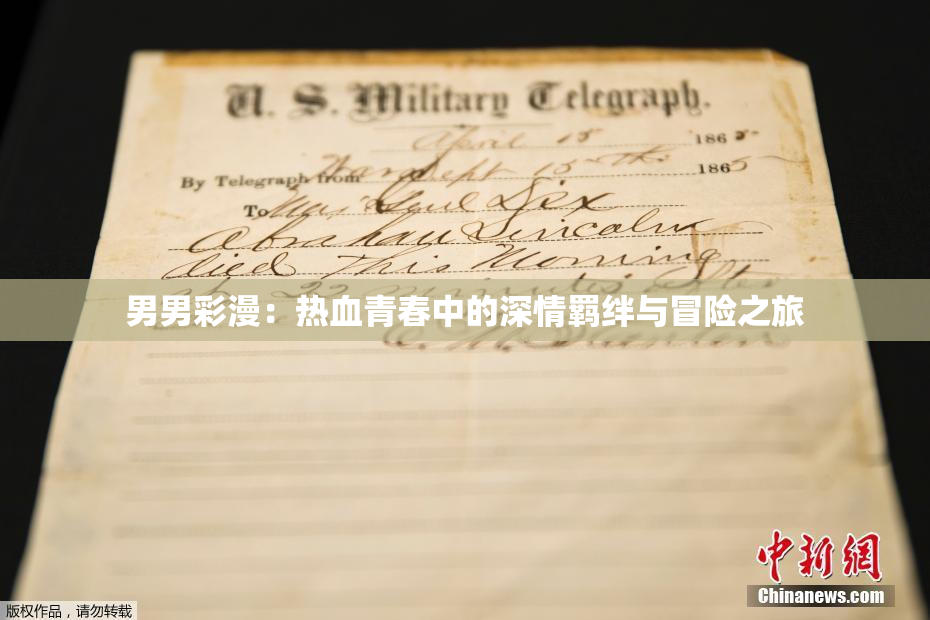 U. S. Military Telegraph.
April 15 1865
By Telegraph from War Dept 15th 1865
To Maj Genl Dix
Abraham Lincoln
died This Morning
at 22 minutes after
男男彩漫：热血青春中的深情羁绊与冒险之旅
E. M. Stanton
中新网
Chinanews.com
版权作品，请勿转载